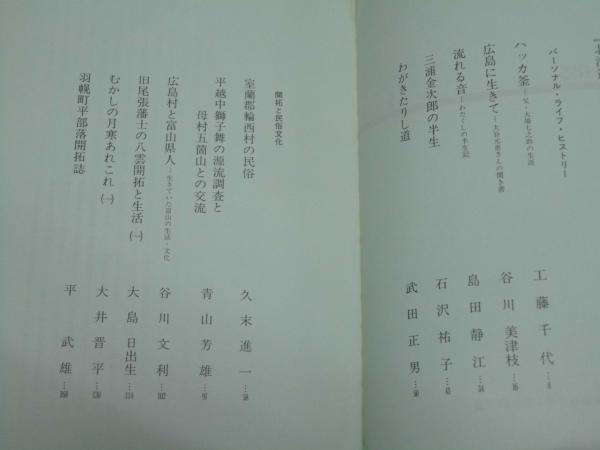 パーソナル・ライフ・ヒストリー
ハッカ釜
工藤千代
広島に生きて
谷川美津枝
流れる音―わたくしの半生記
島田静江
三浦金次郎の半生
石沢祐子
わがきたりし道
武田正男
開拓と民俗文化
室蘭郡輪西村の民俗
久末進一
平越中獅子舞の源流調査と
母村五箇山との交流
青山芳雄
広島村と富山県人―生きていた富山の生活・文化
谷川文利
旧尾張藩士の八雲開拓と生活㈠
大島日出生
むかしの月寒あれこれ㈠
大井晋平
羽幌町平部落開拓誌
平武雄